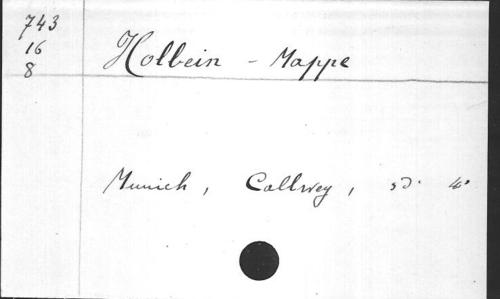 743
16
8
Holbein - Mappe
Munich, Callwey, sd. 4°